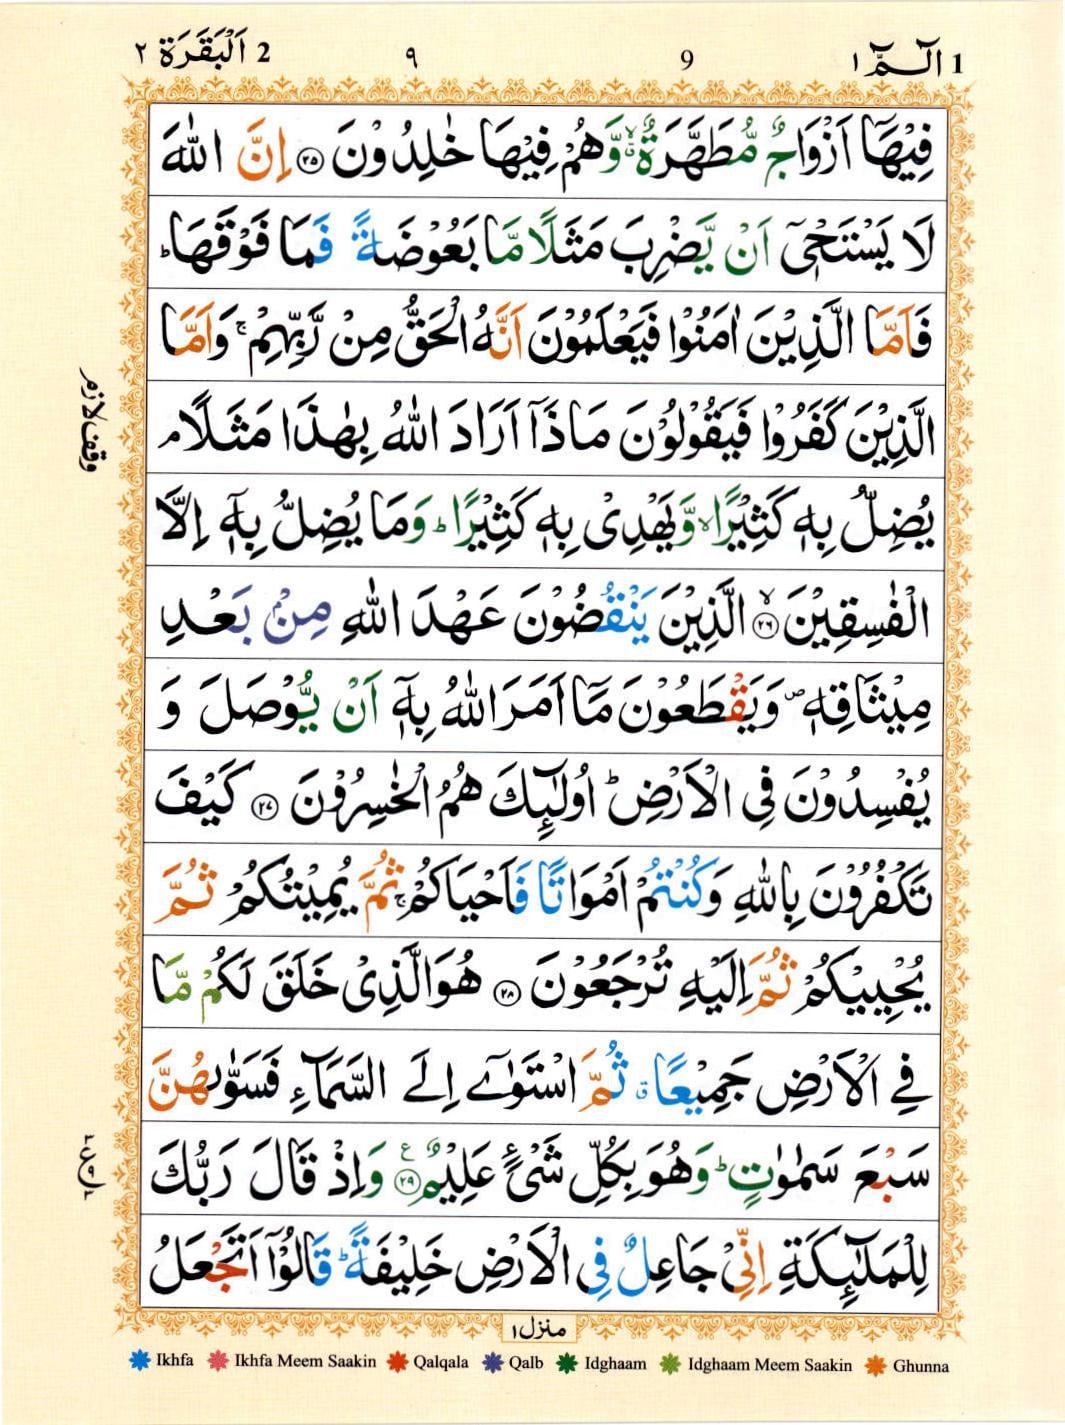 2 اَلْبَقَرَة ٢ ٩ 9 الٓمّٓ ١ 1
فِيْهَاۤ اَزْوَاجٌ مُّطَهَّرَةٌ ۙۗ وَّهُمْ فِيْهَا خٰلِدُوْنَ ﴿۲۵﴾ اِنَّ اللّٰهَ
لَا يَسْتَحْيٖۤ اَنْ يَّضْرِبَ مَثَلًا مَّا بَعُوْضَةً فَمَا فَوْقَهَا ؕ
فَاَمَّا الَّذِيْنَ اٰمَنُوْا فَيَعْلَمُوْنَ اَنَّهُ الْحَقُّ مِنْ رَّبِّهِمْ ۚ وَاَمَّا
الَّذِيْنَ كَفَرُوْا فَيَقُوْلُوْنَ مَاذَاۤ اَرَادَ اللّٰهُ بِهٰذَا مَثَلًا ۘ
وقف لازم
يُضِلُّ بِهٖ كَثِيْرًا ۙ وَّيَهْدِیْ بِهٖ كَثِيْرًا ؕ وَمَا يُضِلُّ بِهٖۤ اِلَّا
الْفٰسِقِيْنَ ۙ﴿۲۶﴾ الَّذِيْنَ يَنْقُضُوْنَ عَهْدَ اللّٰهِ مِنْۢ بَعْدِ
مِيْثَاقِهٖ ۪ وَيَقْطَعُوْنَ مَاۤ اَمَرَ اللّٰهُ بِهٖۤ اَنْ يُّوْصَلَ وَ
يُفْسِدُوْنَ فِی الْاَرْضِ ؕ اُولٰٓئِكَ هُمُ الْخٰسِرُوْنَ ﴿۲۷﴾ كَيْفَ
تَكْفُرُوْنَ بِاللّٰهِ وَكُنْتُمْ اَمْوَاتًا فَاَحْيَاكُمْ ۚ ثُمَّ يُمِيْتُكُمْ ثُمَّ
يُحْيِيْكُمْ ثُمَّ اِلَيْهِ تُرْجَعُوْنَ ﴿۲۸﴾ هُوَ الَّذِیْ خَلَقَ لَكُمْ مَّا
فِی الْاَرْضِ جَمِيْعًا ۗ ثُمَّ اسْتَوٰۤی اِلَی السَّمَآءِ فَسَوّٰىهُنَّ
سَبْعَ سَمٰوٰتٍ ؕ وَهُوَ بِكُلِّ شَیْءٍ عَلِيْمٌ ﴿۲۹﴾ وَاِذْ قَالَ رَبُّكَ
لِلْمَلٰٓئِكَةِ اِنِّیْ جَاعِلٌ فِی الْاَرْضِ خَلِيْفَةً ؕ قَالُوْۤا اَتَجْعَلُ
منزل ١
Ikhfa Ikhfa Meem Saakin Qalqala Qalb Idghaam Idghaam Meem Saakin Ghunna